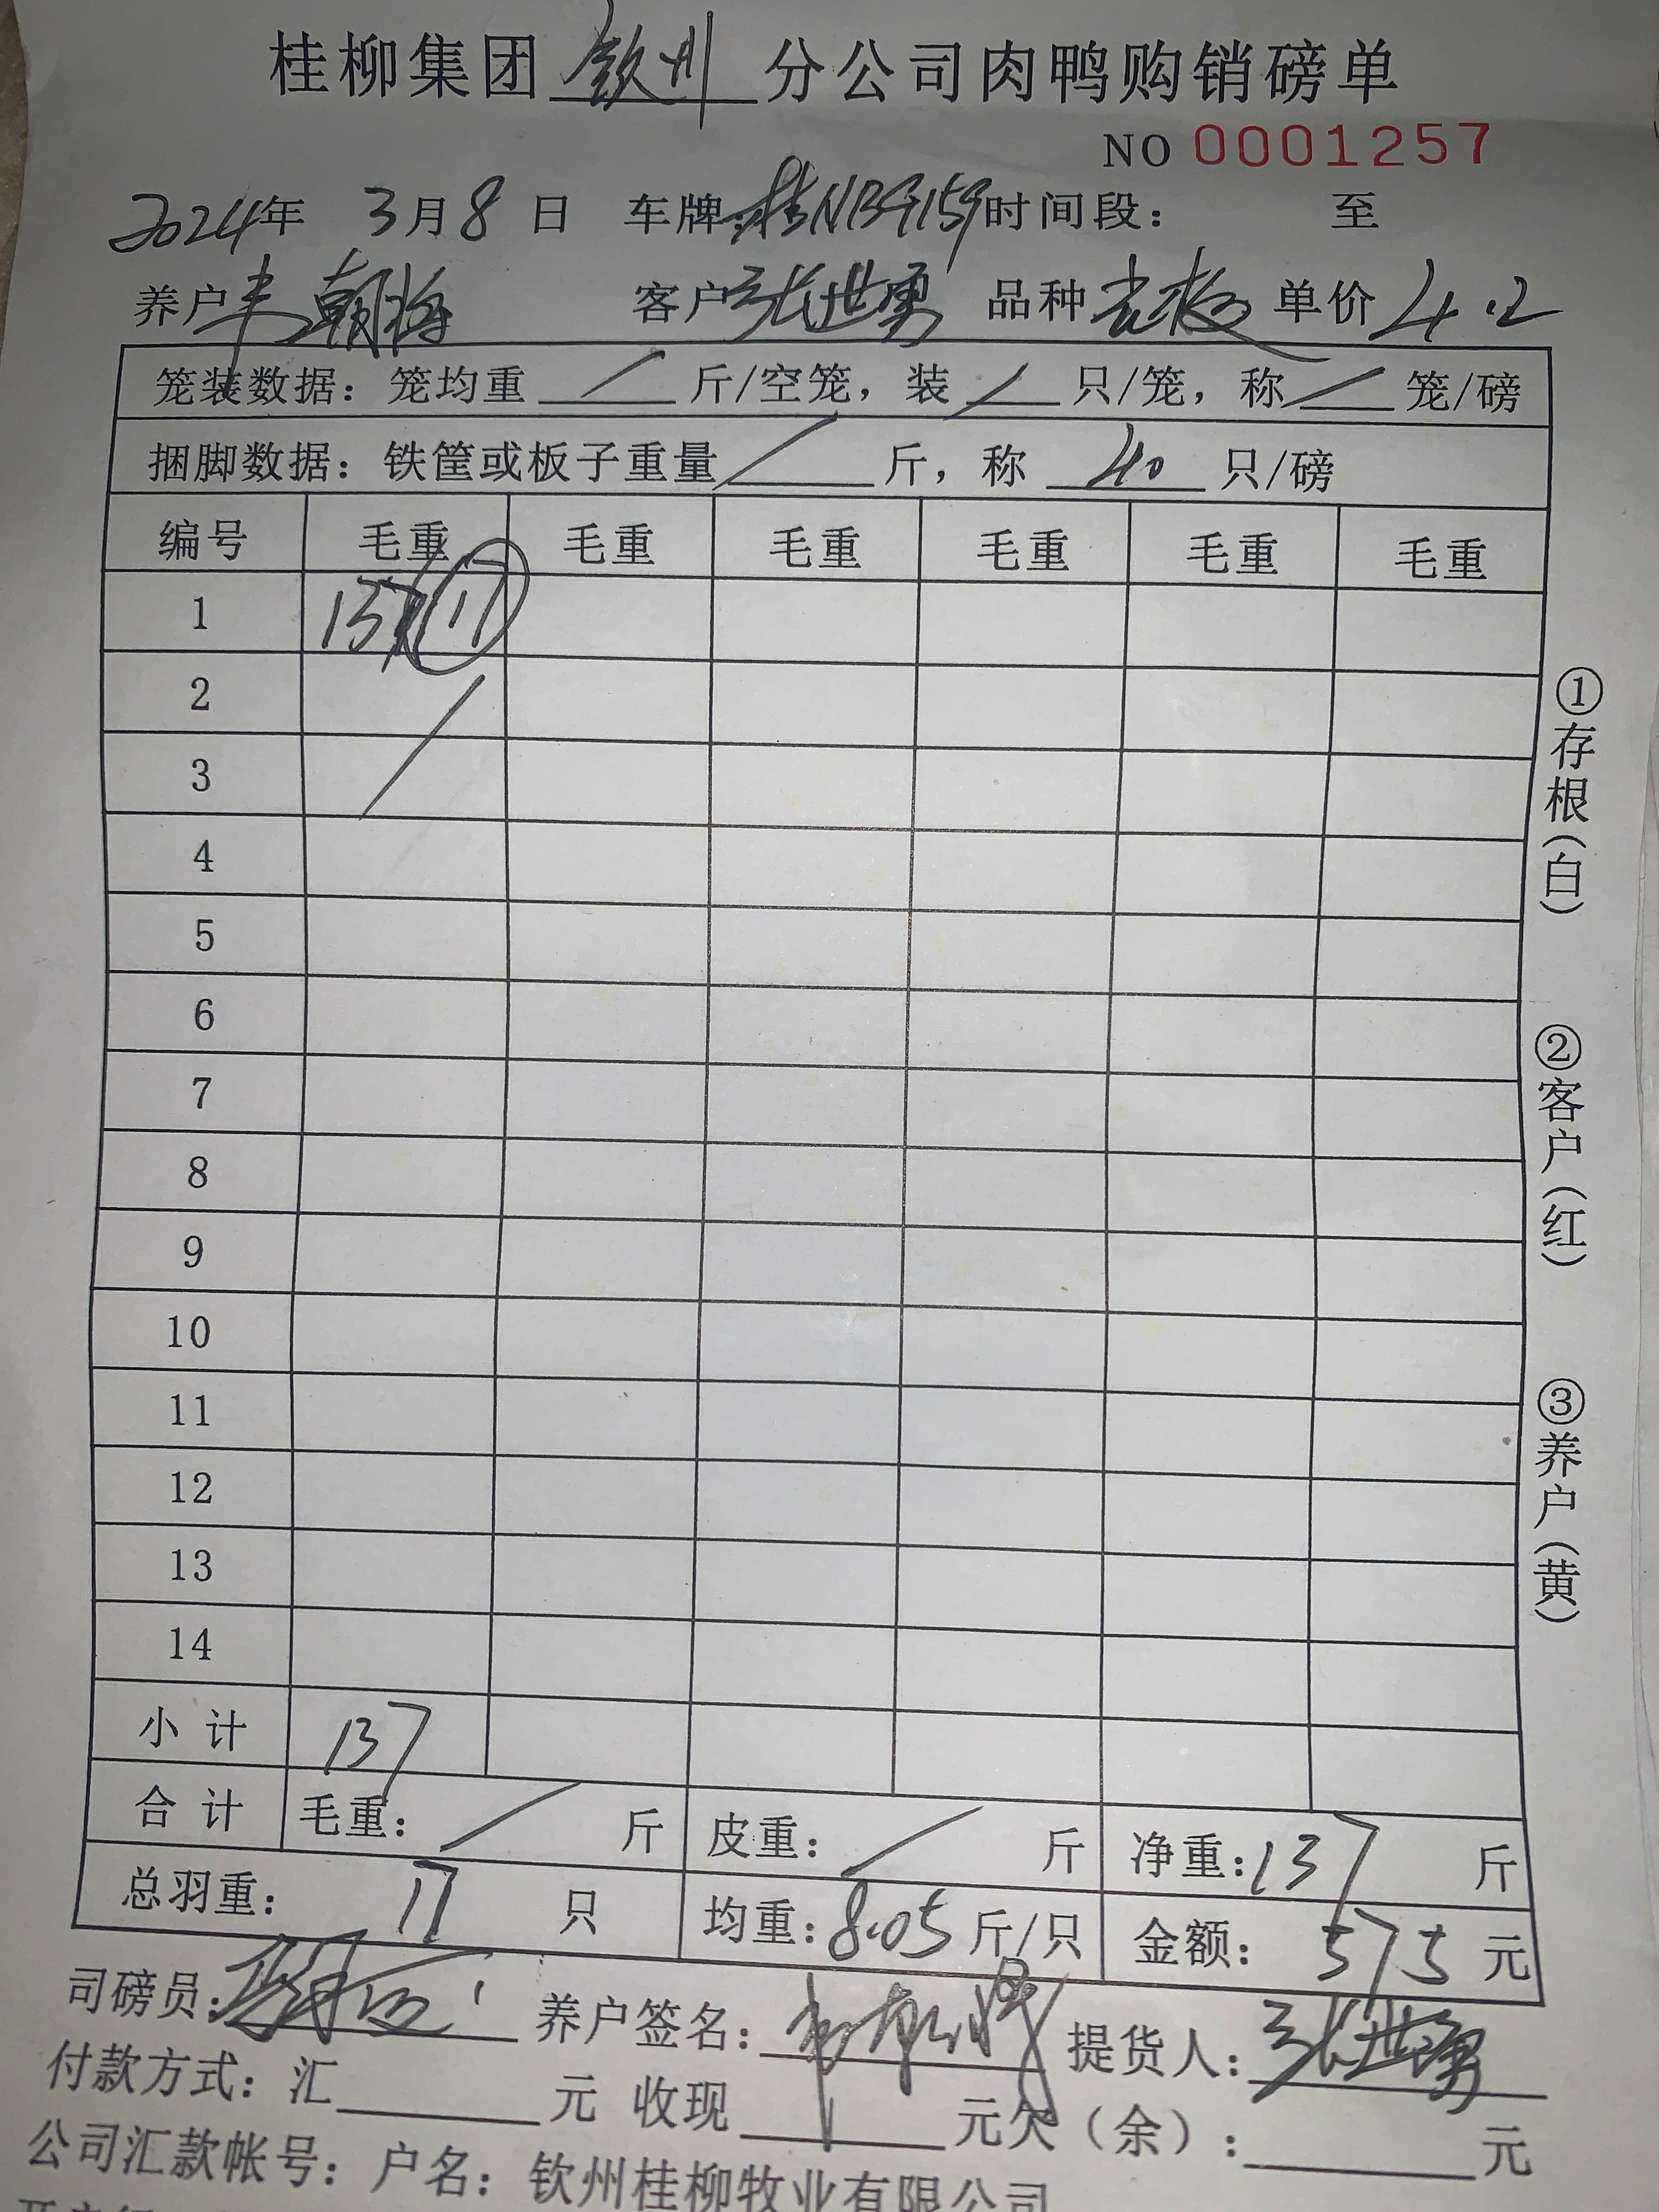 桂柳集团钦州分公司肉鸭购销磅单
NO 0001257
2024年 3月8日 车牌:桂NB9159时间段: 至
养户 朝海 客户张世勇 品种 单价4.2
笼装数据:笼均重 / 斤/空笼,装 / 只/笼,称 / 笼/磅
捆脚数据:铁筐或板子重量 / 斤,称 40 只/磅
编号 毛重 毛重 毛重 毛重 毛重 毛重
1 137 17
2
3
4
5
6
7
8
9
10
11
12
13
14
小计 137
合计 毛重: / 斤 皮重: / 斤 净重:137 斤
总羽重: 17 只 均重:8.05斤/只 金额: 575元
司磅员: 养户签名: 提货人:张世勇
付款方式:汇 元 收现 元欠(余): 元
公司汇款帐号:户名:钦州桂柳牧业有限公司
①存根(白)
②客户(红)
③养户(黄)